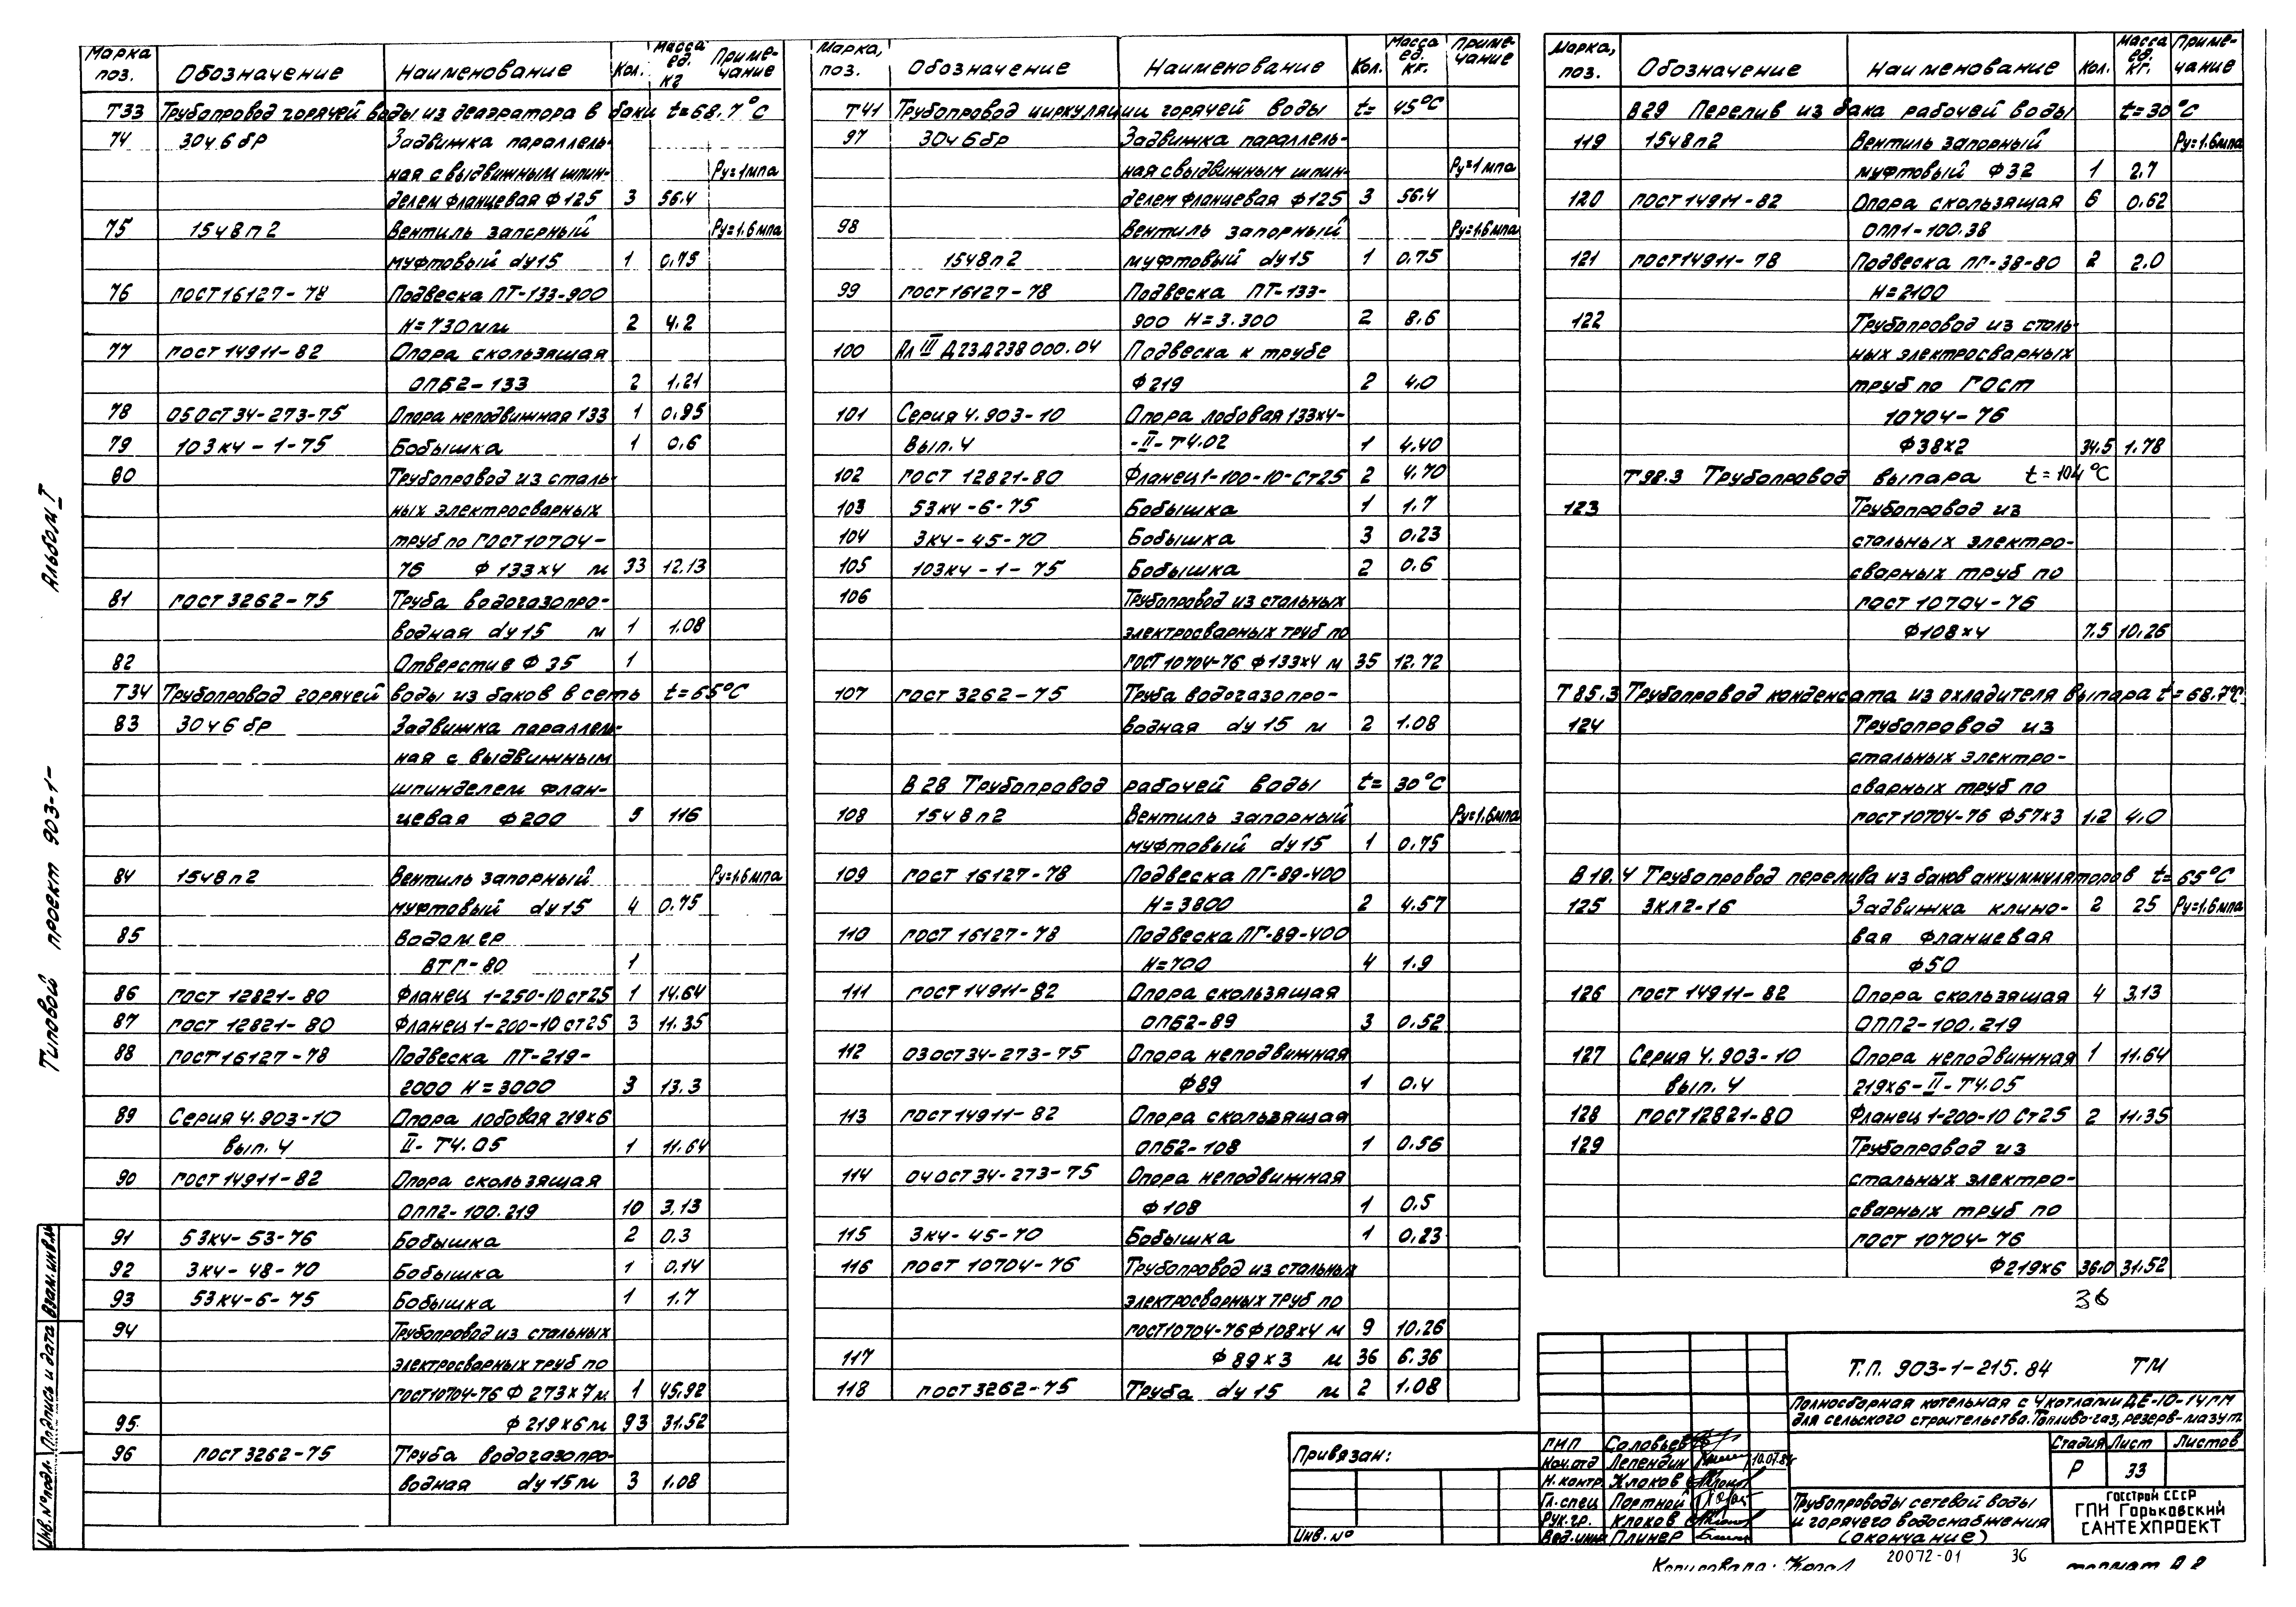 Марка поз. Обозначение Наименование Кол. Масса ед. кг Примечание
Т33 Трубопровод горячей воды из деаэратора в баки t=68.7°С
74 30ч6бр Задвижка параллель-
ная с выдвижным шпин- Ру=1мпа
делем фланцевая Ф125 3 56.4
75 15ч8п2 Вентиль запорный Ру=1.6мпа
муфтовый dу15 1 0.75
76 ГОСТ16127-78 Подвеска ПТ-133-900
Н=730мм 2 4.2
77 ГОСТ14911-82 Опора скользящая
ОПБ2-133 2 1.21
78 05ОСТ34-273-75 Опора неподвижная 133 1 0.95
79 103кч-1-75 Бобышка 1 0.6
80 Трубопровод из сталь-
ных электросварных
труб по ГОСТ10704-
76 Ф133х4 м 33 12.13
81 ГОСТ3262-75 Труба водогазопро-
водная dу15 м 1 1.08
82 Отверстие Ф35 1
Т34 Трубопровод горячей воды из баков в сеть t=65°С
83 30ч6бр Задвижка параллель-
ная с выдвижным
шпинделем флан-
цевая Ф200 5 116
84 15ч8п2 Вентиль запорный Ру=1.6мпа
муфтовый dу15 4 0.75
85 Водомер
ВТГ-80 1
86 ГОСТ 12821-80 Фланец 1-250-10ст25 1 14.64
87 ГОСТ 12821-80 Фланец 1-200-10ст25 3 11.35
88 ГОСТ16127-78 Подвеска ПТ-219-
2000 Н=3000 3 13.3
89 Серия 4.903-10 Опора лобовая 219х6
вып.4 II-Т4.05 1 11.64
90 ГОСТ14911-82 Опора скользящая
ОПП2-100.219 10 3.13
91 53кч-53-76 Бобышка 2 0.3
92 3кч-48-70 Бобышка 1 0.14
93 53кч-6-75 Бобышка 1 1.7
94 Трубопровод из стальных
электросварных труб по
ГОСТ10704-76 Ф273х7м 1 45.92
95 Ф219х6м 93 31.52
96 ГОСТ3262-75 Труба водогазопро-
водная dу15м 3 1.08
Марка, поз. Обозначение Наименование Кол. Масса ед. кг. Примечание
Т41 Трубопровод циркуляции горячей воды t= 45°С
97 30ч6бр Задвижка параллель-
ная с выдвижным шпин- Ру=1мпа
делем фланцевая Ф125 3 56.4
98 Вентиль запорный Ру=1.6мпа
15ч8п2 муфтовый dу15 1 0.75
99 ГОСТ16127-78 Подвеска ПТ-133-
900 Н=3.300 2 8.6
100 Ал III Д23Д238000.04 Подвеска к трубе
Ф219 2 4.0
101 Серия 4.903-10 Опора лобовая 133х4-
Вып.4 -II-Т4.02 1 4.40
102 ГОСТ 12821-80 Фланец1-100-10-Ст25 2 4.70
103 53кч-6-75 Бобышка 1 1.7
104 3кч-45-70 Бобышка 3 0.23
105 103кч-1-75 Бобышка 2 0.6
106 Трубопровод из стальных
электросварных труб по
ГОСТ10704-76 Ф133х4 м 35 12.72
107 ГОСТ 3262-75 Труба водогазопро-
водная dу15 м 2 1.08
В28 Трубопровод рабочей воды t= 30°С
108 15ч8п2 Вентиль запорный Ру=1.6мпа
муфтовый dу15 1 0.75
109 ГОСТ 16127-78 Подвеска ПГ-89-400
Н=3800 2 4.57
110 ГОСТ 16127-78 Подвеска ПГ-89-400
Н=700 4 1.9
111 ГОСТ14911-82 Опора скользящая
ОПБ2-89 3 0.52
112 03ОСТ34-273-75 Опора неподвижная
Ф89 1 0.4
113 ГОСТ14911-82 Опора скользящая
ОПБ2-108 1 0.56
114 04ОСТ34-273-75 Опора неподвижная
Ф108 1 0.5
115 3кч-45-70 Бобышка 1 0.23
116 ГОСТ 10704-76 Трубопровод из стальных
электросварных труб по
ГОСТ10704-76Ф108х4 м 9 10.26
117 Ф89х3 м 36 6.36
118 ГОСТ3262-75 Труба dу15 м 2 1.08
Марка, поз. Обозначение Наименование Кол. Масса ед. кг. Примечание
В29 Перелив из бака рабочей воды t=30°С
119 15ч8п2 Вентиль запорный Ру=1.6мпа
муфтовый Ф32 1 2.7
120 ГОСТ14911-82 Опора скользящая 6 0.62
ОПП1-100.38
121 ГОСТ14911-78 Подвеска ПГ-38-80 2 2.0
Н=2100
122 Трубопровод из сталь-
ных электросварных
труб по ГОСТ
10704-76
Ф38х2 34.5 1.78
Т98.3 Трубопровод выпара t=104°С
123 Трубопровод из
стальных электро-
сварных труб по
ГОСТ 10704-76
Ф108х4 7.5 10.26
Т85.3 Трубопровод конденсата из охладителя выпара t=68.7°С
124 Трубопровод из
стальных электро-
сварных труб по
ГОСТ10704-76 Ф57х3 1.2 4.0
В10.4 Трубопровод перелива из баков аккуммуляторов t= 65°С
125 3КЛ2-16 Задвижка клино- 2 25 Ру=1.6мпа
вая фланцевая
Ф50
126 ГОСТ 14911-82 Опора скользящая 4 3.13
ОПП2-100.219
127 Серия 4.903-10 Опора неподвижная 1 11.64
вып.4 219х6-II-Т4.05
128 ГОСТ12821-80 Фланец1-200-10 Ст25 2 11.35
129 Трубопровод из
стальных электро-
сварных труб по
ГОСТ 10704-76
Ф219х6 36.0 31.52
36
Т.П. 903-1-215.84 ТМ
Полносборная котельная с 4 котлами ДЕ-10-14ГМ
для сельского строительства. Топливо-газ, резерв-мазут
Стадия Лист Листов
Р 33
Трубопроводы сетевой воды
и горячего водоснабжения
(окончание)
ГОССТРОЙ СССР
ГПИ Горьковский
САНТЕХПРОЕКТ
ГИП Соловьев
Нач.отд Лепендин 10.07.84
Н.контр. Клоков
Гл.спец Портной
Рук.гр. Клоков
Вед.инж Плинер
Привязан:
Инв.№
20072-01 36
Копировала:
формат А2
Типовой проект 903-1- Альбом I
Инв.№ подл. Подпись и дата Взам.инв.№